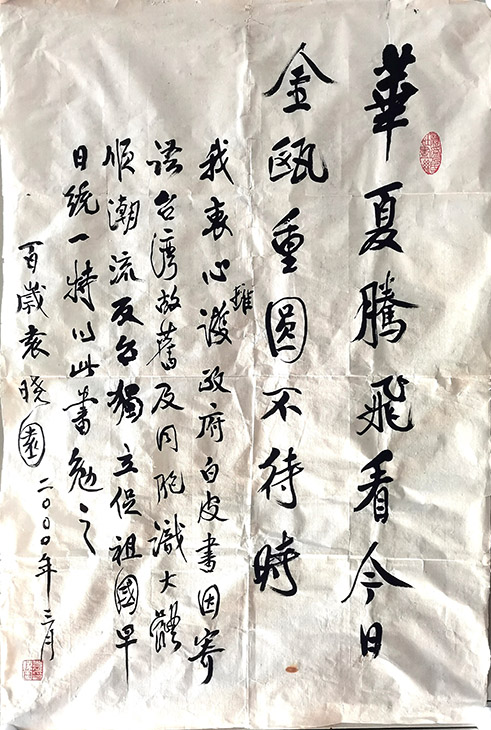 華夏騰飛看今日
金甌重圓不待時
我衷心擁護政府白皮書因寄
語台灣故舊及同胞識大體
順潮流反台獨立促祖國早
日統一特以此書勉之
百歲袁曉園二〇〇〇年三月